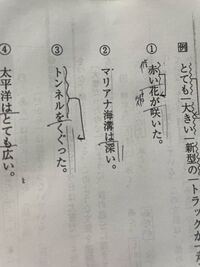 例 とても|大きい|新型の|トラックが
① 赤い花が咲いた。
② マリアナ海溝は深い。
③ トンネルをくぐった。
④ 太平洋はとても広い。